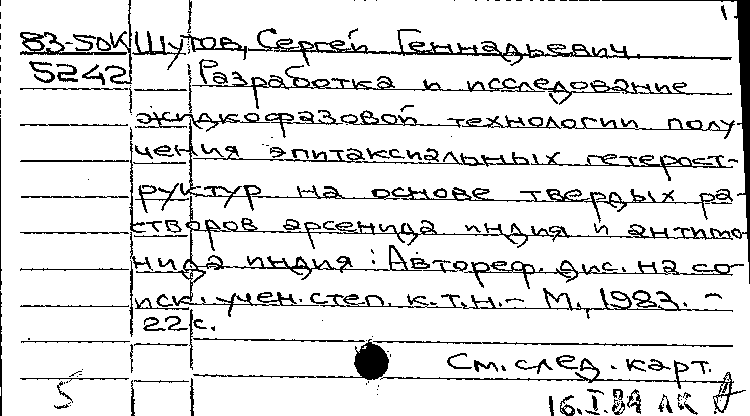 83-50К Шутов, Сергей Геннадьевич.
5242 Разработка и исследование
жидкофазовой технологии полу-
чения эпитаксиальных гетерост-
руктур на основе твердых ра-
створов арсенида индия и антимо-
нида индия : Автореф. дис. на со-
иск. учен. степ. к.т.н. - М., 1983. -
22 с.
См. след. карт.
5
16.I.84